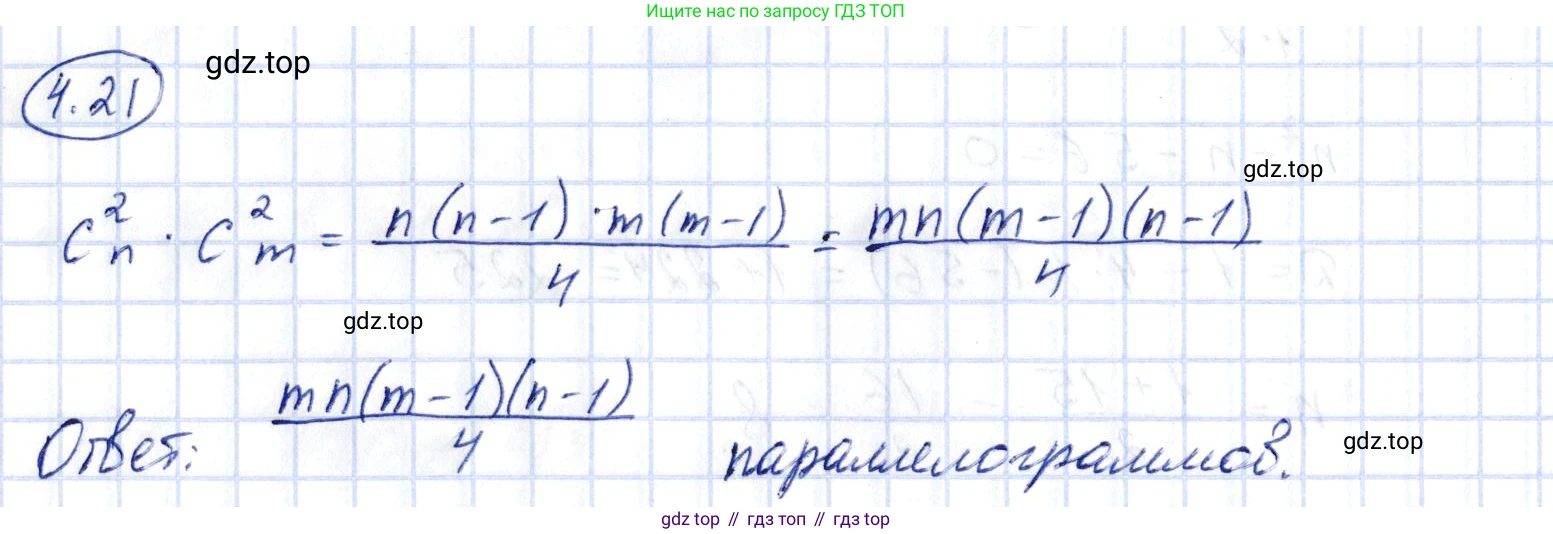 Ищите нас по запросу ГДЗ ТОП
4.21 gdz.top
gdz.top
C²ₙ · C²ₘ = n(n-1)·m(m-1)/4 = mn(m-1)(n-1)/4
gdz.top
Ответ: mn(m-1)(n-1)/4 параллелограммов.
gdz.top
gdz top // гдз топ // гдз top